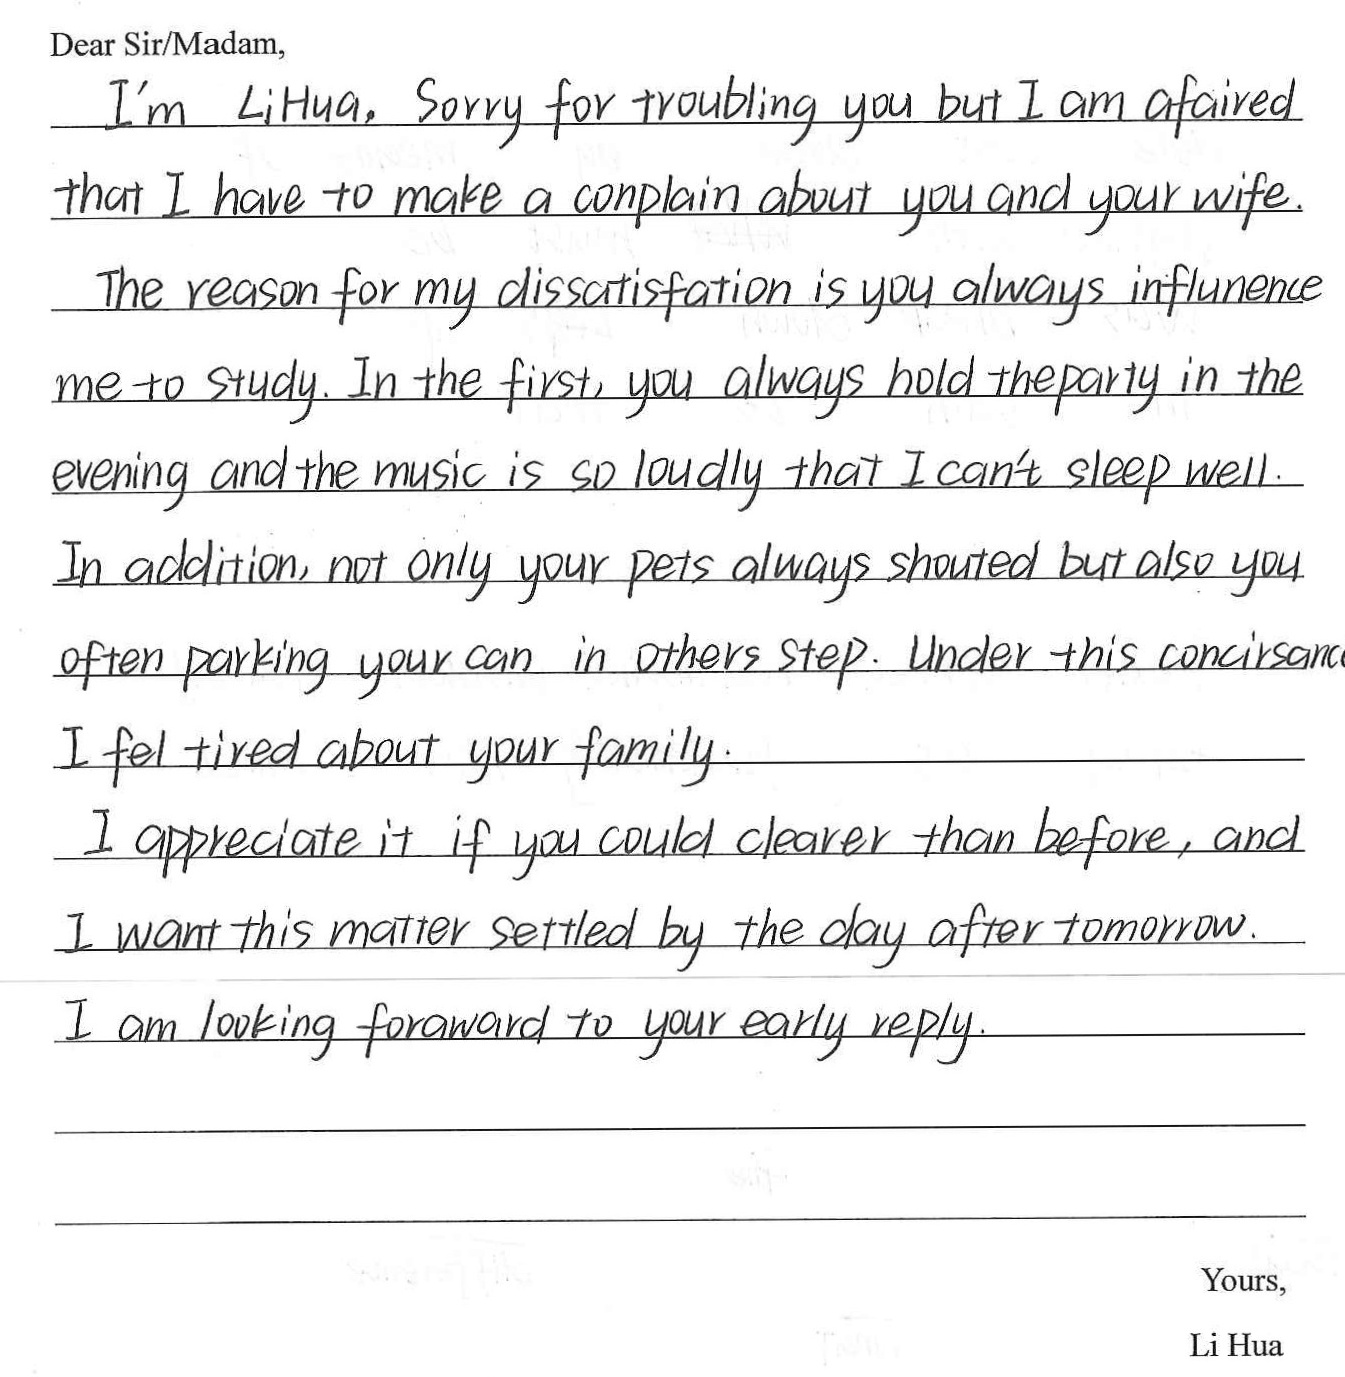 Dear Sir/Madam,
I'm LiHua. Sorry for troubling you but I am afaired
that I have to make a conplain about you and your wife.
The reason for my dissatisfation is you always influnence
me to study. In the first, you always hold the party in the
evening and the music is so loudly that I can't sleep well.
In addition, not only your pets always shouted but also you
often parking your can in others step. Under this concirsance
I fel tired about your family.
I appreciate it if you could clearer than before, and
I want this matter settled by the day after tomorrow.
I am looking foraward to your early reply.
Yours,
Li Hua